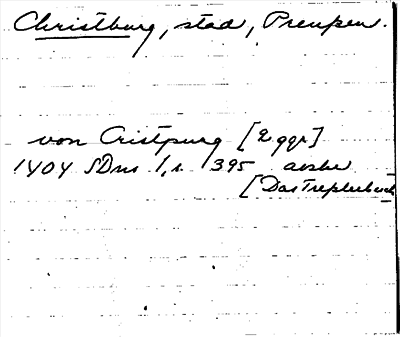 Christburg, stad, Preußen.
von Cristpurg [2 ggr]
1404 SDns 1, s. 395 avskr
[Das Tresslerbuch